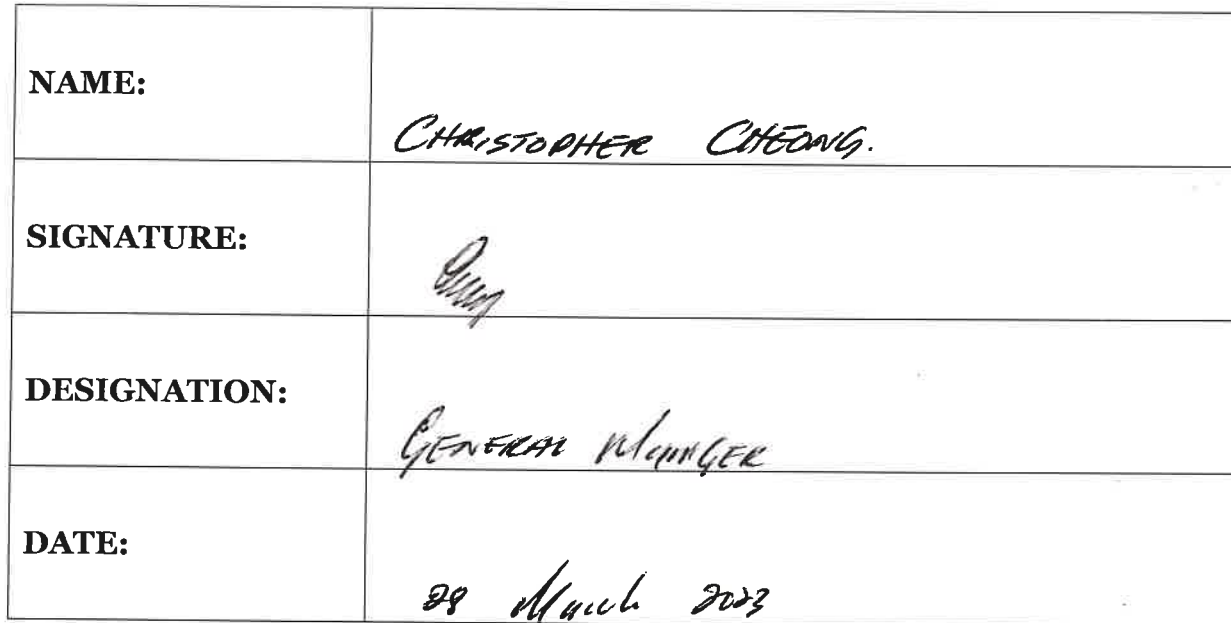 NAME:
CHRISTOPHER CHEONG.
SIGNATURE:
DESIGNATION:
GENERAL MANAGER
DATE:
28 March 2023